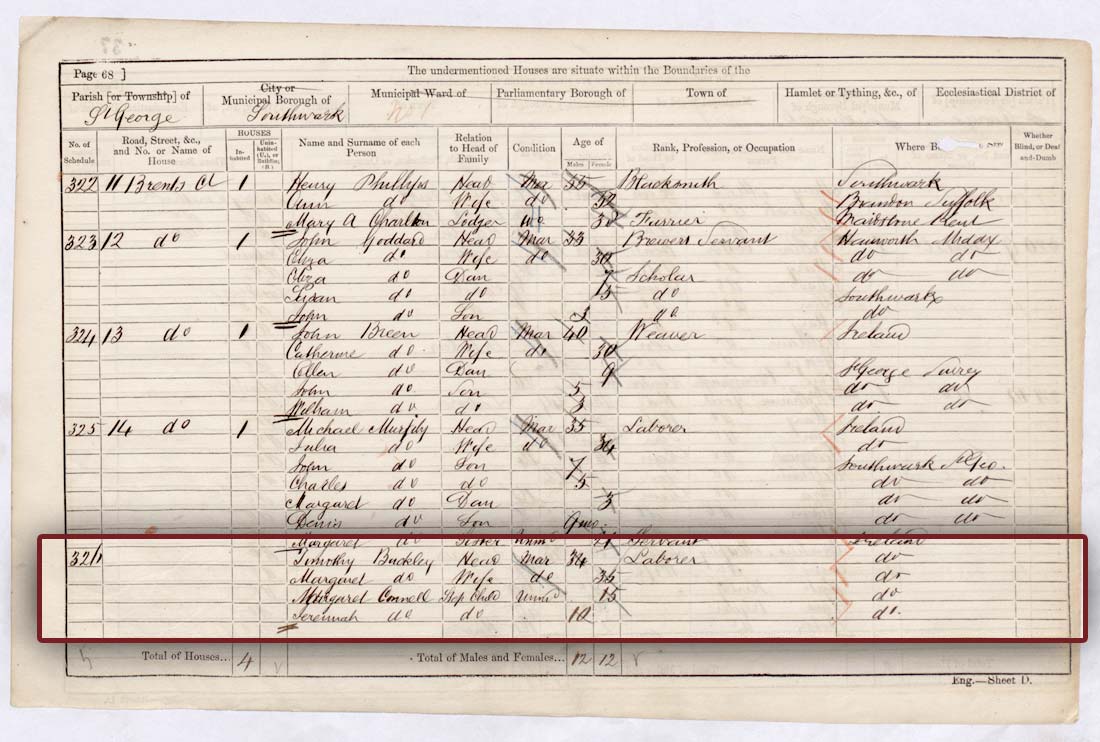 Page 68 ] The undermentioned Houses are situate within the Boundaries of the
Parish [or Township] of City or Municipal Borough of Municipal Ward of Parliamentary Borough of Town of Hamlet or Tything, &c., of Ecclesiastical District of
St George Southwark
No. of Schedule Road, Street, &c., and No. or Name of House HOUSES Inhabited Uninhabited (U.), or Building (B) Name and Surname of each Person Relation to Head of Family Condition Age of Males Females Rank, Profession, or Occupation Where Whether Blind, or Deaf-and-Dumb
322 11 Brents Ct 1 Henry Phillips Head Mar 55 Blacksmith Southwark
Ann do Wife do 52 Brandon Suffolk
Mary A Charlton Lodger 30 Furrier Maidstone Kent
323 12 do 1 John Goddard Head Mar 33 Brewers Servant Hanworth Middx
Eliza do Wife do 30 do do
Eliza do Dau 7 Scholar do do
Susan do do 5 do Southwark
John do Son do do
324 13 do 1 John Breen Head Mar 40 Weaver Ireland
Catherine do Wife do 30
Ellen do Dau 9 St George Surrey
John do Son 5 do do
William do do 3 do do
325 14 do 1 Michael Murphy Head Mar 35 Laborer Ireland
Julia do Wife do 34 do
John do Son 7 Southwark St Geo.
Charles do do 5 do do
Margaret do Dau 3 do do
Denis do Son 9mo do do
Margaret do Sister Unmd 21 Servant Ireland
Timothy Buckley Head Mar 34 Laborer do
Margaret do Wife do 35 do
Margaret Connell Step Child Unmd 15 do
Jeremiah do do 12 do
Total of Houses... 4 Total of Males and Females... 12 12
Eng.—Sheet D.